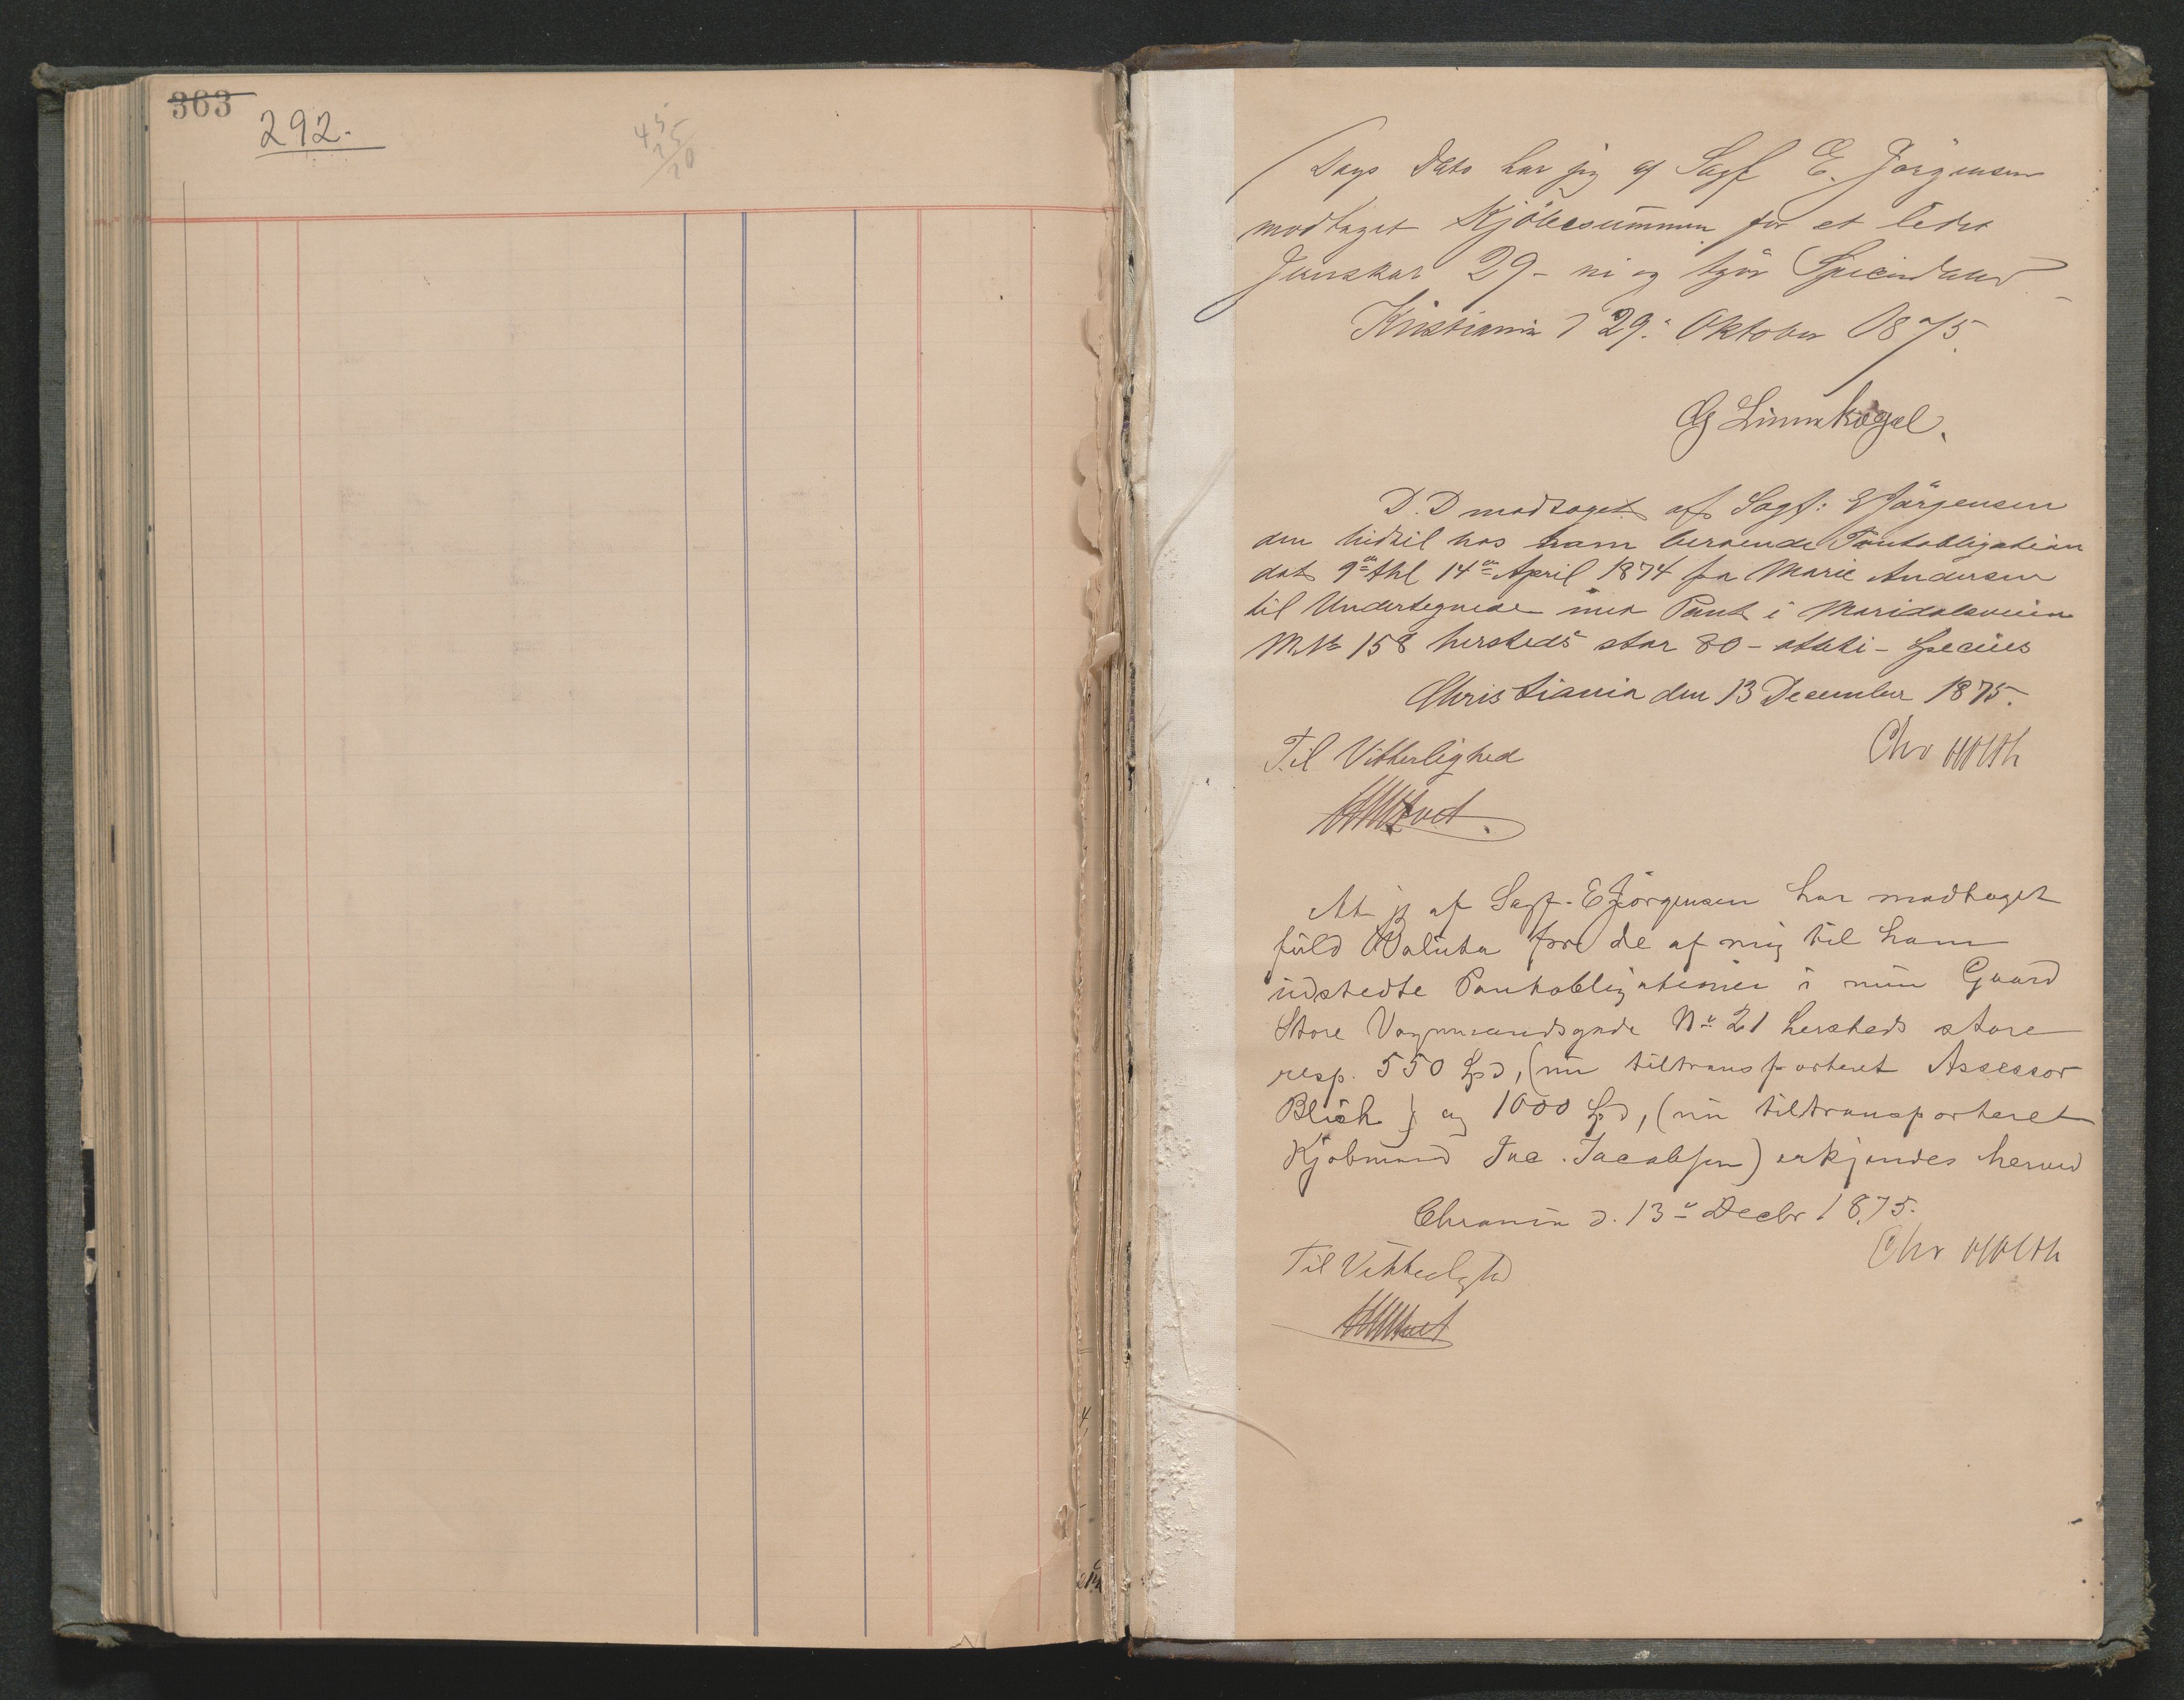 363
292.
45
25
20
Dags Dato har jeg af Sagf E. Jörgensen
modtaget Kjöbesummen for et lidet
29 - ni og tyve Speciedaler
Kristiania d 29: Oktober 1875.
D. D modtaget af Sagf: E Jörgensen
den hidtil hos ham beroende Pantobligation
dat 9de thl 14de April 1874 fra Marie Andersen
til Undertegnede med Pant i Maridalsveien
M No 158 hersteds stor 80 - otteti - Specier
Christiania den 13 December 1875.
Til Vitterlighed
Chr Holth
At jeg af Sagf. E Jörgensen har modtaget
fuld Valuta for de af mig til ham
udstedte Pantobligationer i min Gaard
Store Vognmandsgade No 21 hersteds store
resp. 550 Spd, (nu tiltransporteret Assessor
Blich) og 1000 Spd, (nu tiltransporteret
Kjöbmand Jac. Jacobsen) erkjendes herved
Chrania d. 13de Decbr 1875.
Chr Holth
Til Vitterlighd